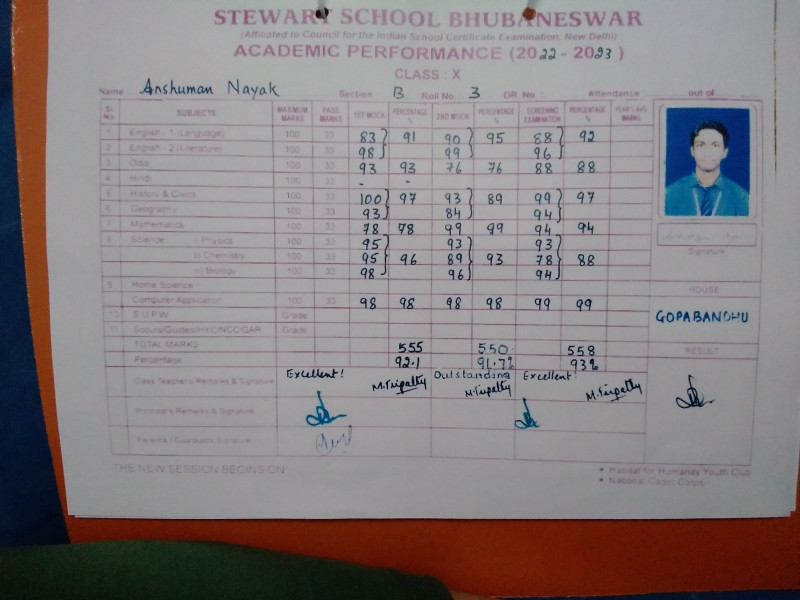 STEWART SCHOOL BHUBANESWAR
(Affiliated to Council for the Indian School Certificate Examination, New Delhi)
ACADEMIC PERFORMANCE (2022 - 2023)
CLASS : X
Name Anshuman Nayak Section B Roll No. 3 DR. No. Attendance out of
Sl. No. SUBJECTS MAXIMUM MARKS PASS MARKS 1ST MOCK PERCENTAGE % 2ND MOCK PERCENTAGE % SCREENING EXAMINATION PERCENTAGE % MARKS
1 English - 1 (Language) 100 33 83 91 90 95 88 92
2 English - 2 (Literature) 100 33 98 99 96
3 Odia 100 33 93 93 76 76 88 88
4 Hindi 100 33 - -
5 History & Civics 100 33 100 97 93 89 99 97
6 Geography 100 33 93 84 94
7 Mathematics 100 33 78 78 99 99 94 94
8 Science i) Physics 100 33 95 93 93
ii) Chemistry 100 33 95 96 89 93 78 88
iii) Biology 100 33 98 96 94
Signature
9 Home Science
HOUSE
Computer Application 100 33 98 98 98 98 99 99
10 S.U.P.W. Grade
GOPABANDHU
11 Scouts/Guides/HYC/NCC/GAR Grade
TOTAL MARKS 555 550 558
RESULT
Percentage 92.1 91.7% 93%
Class Teacher's Remarks & Signature Excellent! M.Tripathy Outstanding M.Tripathy Excellent! M.Tripathy
Principal's Remarks & Signature
Parents / Guardian's Signature
THE NEW SESSION BEGINS ON
• Habitat for Humanity Youth Club
• National Cadet Corps